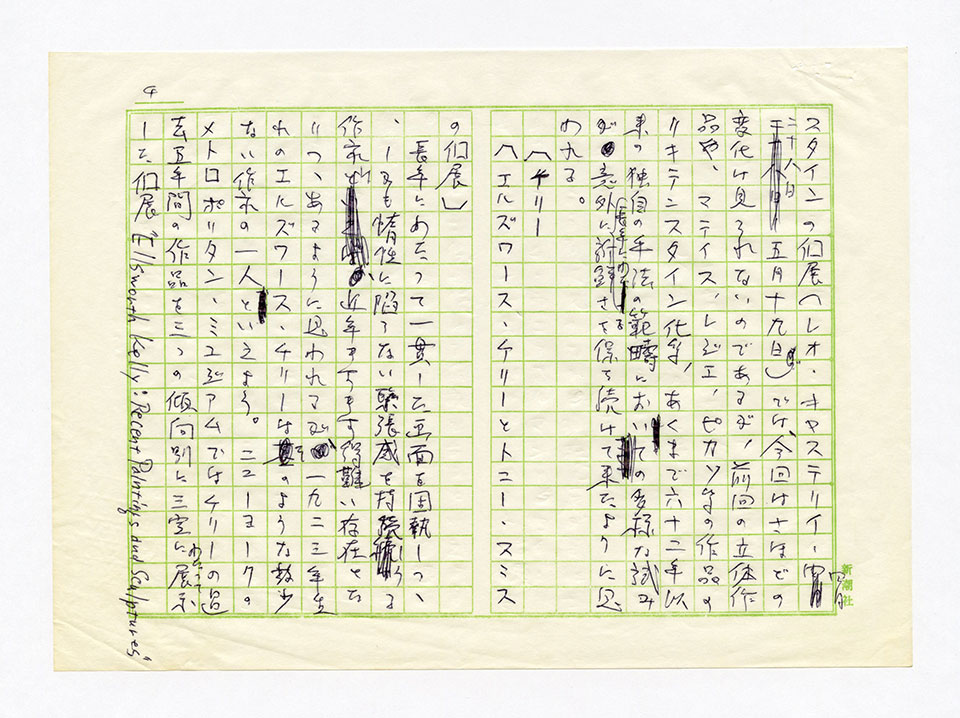 4
スタインの個展(レオ・キャステリイ・
二十八日
五月十九日)では、今回はさほどの
変化は見られないのであるが、前回の立体作
品や、マティス、レジェ、ピカソ等の作品の
リキテンスタイン化等、あくまで六十二年以
来の独自の手法の範疇においての多様な試み
が意外に新鮮さを保ち続けて来たように思
われる。
〈エルズワース・ケリーとトニー・スミス
の個展〉
長年にわたって一貫した画面を固執しつつ、
しかも惰性に陥らない緊張感を持続
作家は、近年ますます得難い存在とな
りつつあるように思われるが、一九二三年生
れのエルズワース・ケリーはそのような数少
ない作家の一人といえよう。ニューヨークの
メトロポリタン・ミュジアムではケリーの過
去五年間の作品を三つの傾向別に三室にわたって展示
した個展"Ellsworth Kelly : Recent Paintings and Sculptures"
新潮社